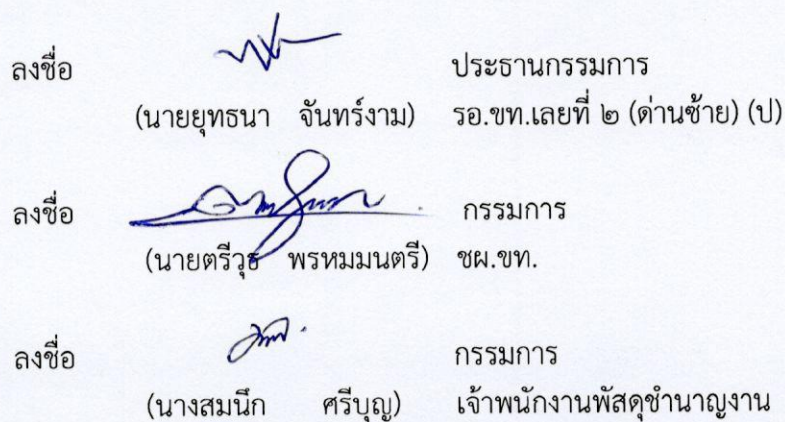 ลงชื่อ ประธานกรรมการ
(นายยุทธนา จันทร์งาม) รอ.ขท.เลยที่ ๒ (ด่านซ้าย) (ป)
ลงชื่อ กรรมการ
(นายตรีวุธ พรหมมนตรี) ชผ.ขท.
ลงชื่อ กรรมการ
(นางสมนึก ศรีบุญ) เจ้าพนักงานพัสดุชำนาญงาน